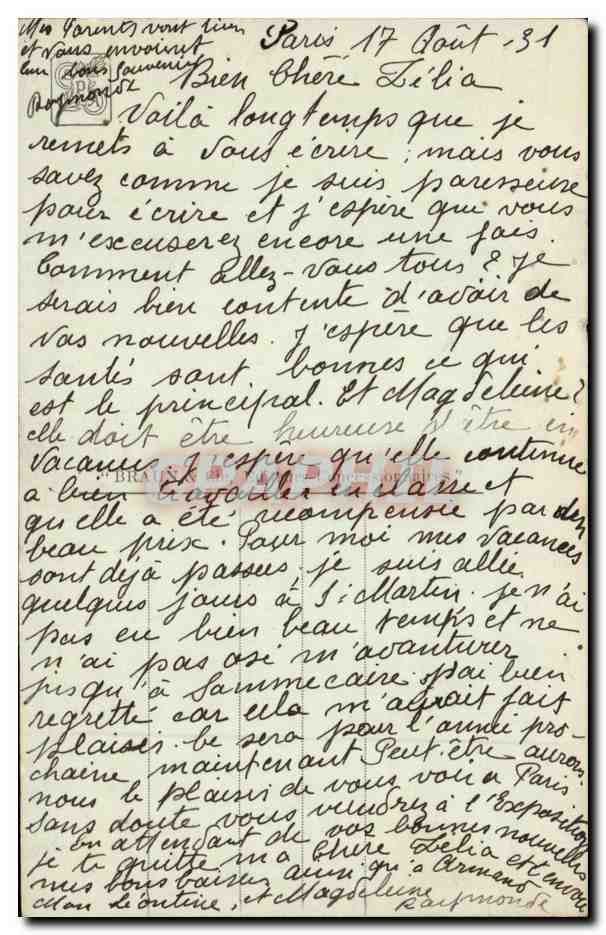 Mes Parents vont bien
et vous envoient
leur bons Souvenirs
Raymonde
Paris 17 Août-31
Bien Chère Zélia
Voilà longtemps que je
remets à vous écrire; mais vous
savez comme je suis paresseuse
pour écrire et j'espère que vous
m'excuserez encore une fois.
Comment allez-vous tous? Je
serais bien contente d'avoir de
vos nouvelles. J'espère que les
santés sont bonnes ce qui
est le principal. Et Magdeleine?
elle doit être heureuse d'être en
vacances. J'espère qu'elle continue
"BRAUN &
à bien travailler en classe et
qu'elle a été récompensée par des
beau prix. Pour moi mes vacances
sont déjà passées, je suis allée
quelques jours à St Martin. je n'ai
pas eu bien beau temps et ne
n'ai pas osé m'avanturer
jusqu'à Sammecaire. j'ai bien
regretté car cela m'aurait fait
plaisir. Ce sera pour l'année pro-
chaine maintenant. Peut-être aurons
nous le plaisir de vous voir a Paris
sans doute vous viendrez à l'Exposition
en attendant de vos bonnes nouvelles
je te quitte ma Chère Zélia et encore
mes bons baisers ainsi qu'à Armand
Léontine, et Magdeleine
Raymonde